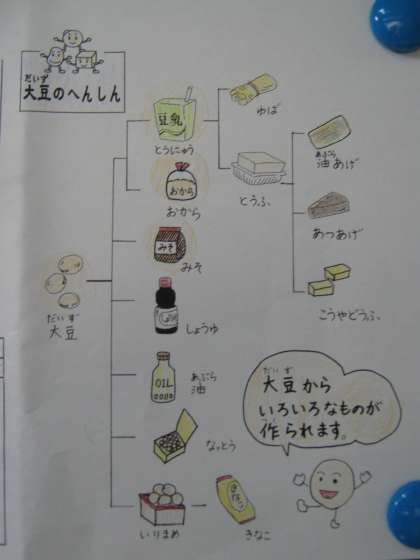 だいず
大豆のへんしん
豆乳
とうにゅう
ゆば
とうふ
あぶら
油あげ
あつあげ
こうやどうふ
おから
おから
みそ
みそ
だいず
大豆
しょうゆ
OIL
あぶら
油
なっとう
いりまめ
きなこ
きなこ
だいず
大豆から
いろいろなものが
つく
作られます。